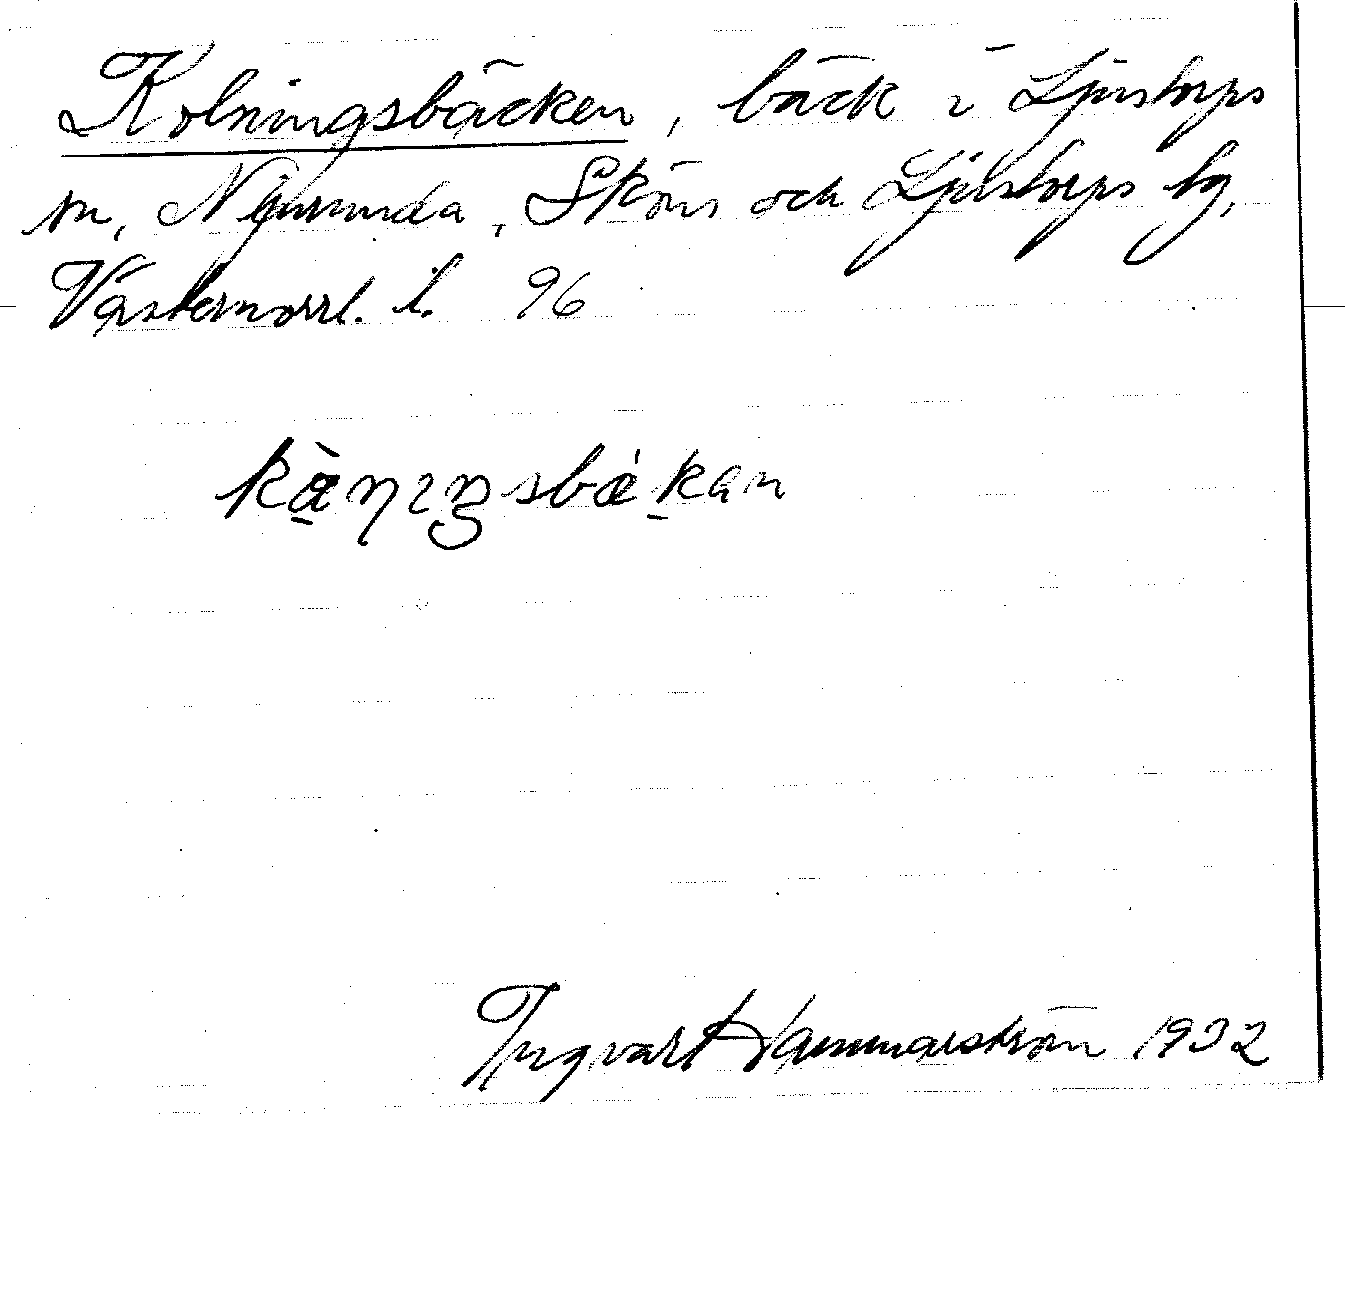 Kolningsbäcken, bäck i Ljustorps
sn, Njurunda, Sköns och Ljustorps tg,
Västernorrl. l. 96
kæ̀ŋɩŋsbǽkan
Ingvart Hammarström 1932